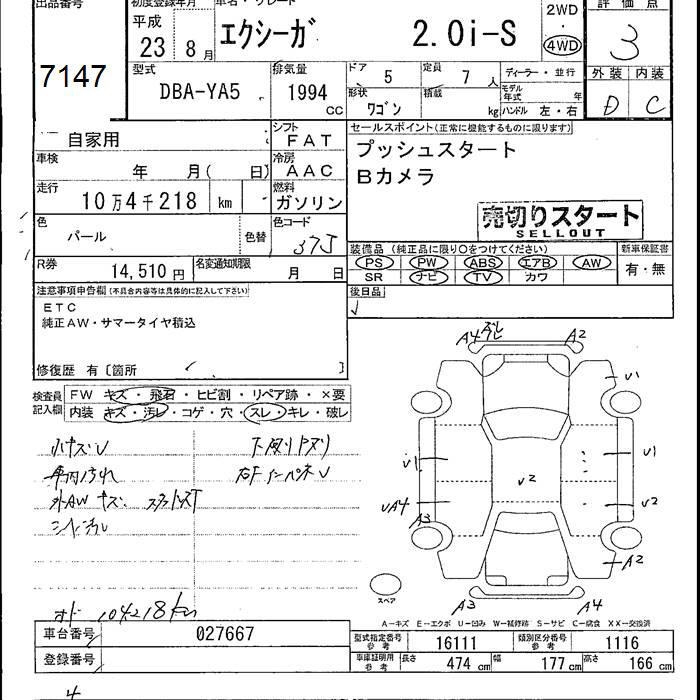 出品番号 初度登録年月 車名・グレード 評価点
平成 23 8月 エクシーガ 2.0i-S 2WD・4WD 3
7147
型式 DBA-YA5 排気量 1994 CC ドア 5 定員 7人 ディーラー・並行 外装 内装
形状 ワゴン 積載 kg モデル年式 年 ハンドル 左・右 D C
自家用 シフト FAT セールスポイント(正常に機能するものに限ります)
車検 年 月( 日) 冷房 AAC プッシュスタート
走行 10万4千218 km 燃料 ガソリン Bカメラ
色 パール 色替 色コード 37J 売切りスタート
SELLOUT
装備品(純正品に限り○をつけてください) 新車保証書
PS PW ABS エアB AW 有・無
R券 14,510円 名変通知期限 月 日 SR ナビ TV カワ
注意事項申告欄(不具合内容等は具体的に記入して下さい) 後日品
ETC
純正AW・サマータイヤ積込
修復歴 有〔箇所 〕
検査員記入欄 FW キズ・飛石・ヒビ割・リペア跡・×要
内装 キズ・汚レ・コゲ・穴・スレ・キレ・破レ
小キズU
車内汚れ
外AW キズ
シート汚レ
A4 A2
U1
U1 U1
U2
UA4 U2
A3
A2
スペア
A3 A4
オドー 104218km
A−キズ E−エクボ U−凹み W−補修跡 S−サビ C−腐食 XX−交換済
車台番号 027667 型式指定番号 参考 16111 類別区分番号 参考 1116
登録番号 車庫証明用 参考 長さ 474 cm 幅 177 cm 高さ 166 cm
4